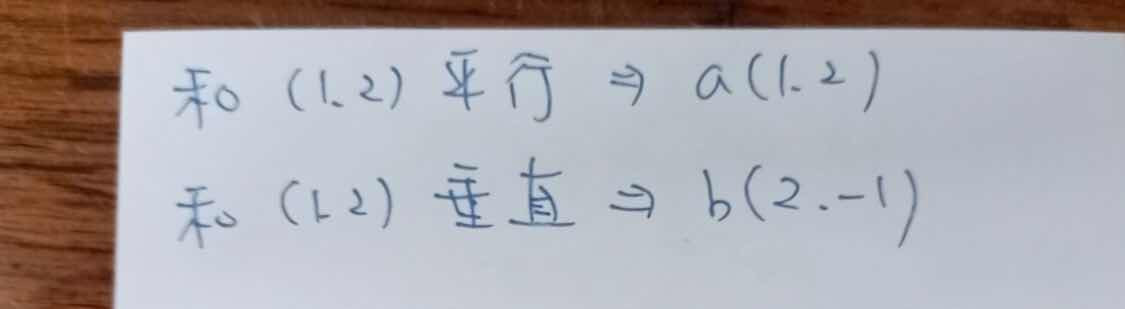 和 (1.2) 平行 ⇒ a(1.2)
和 (1.2) 垂直 ⇒ b(2.-1)